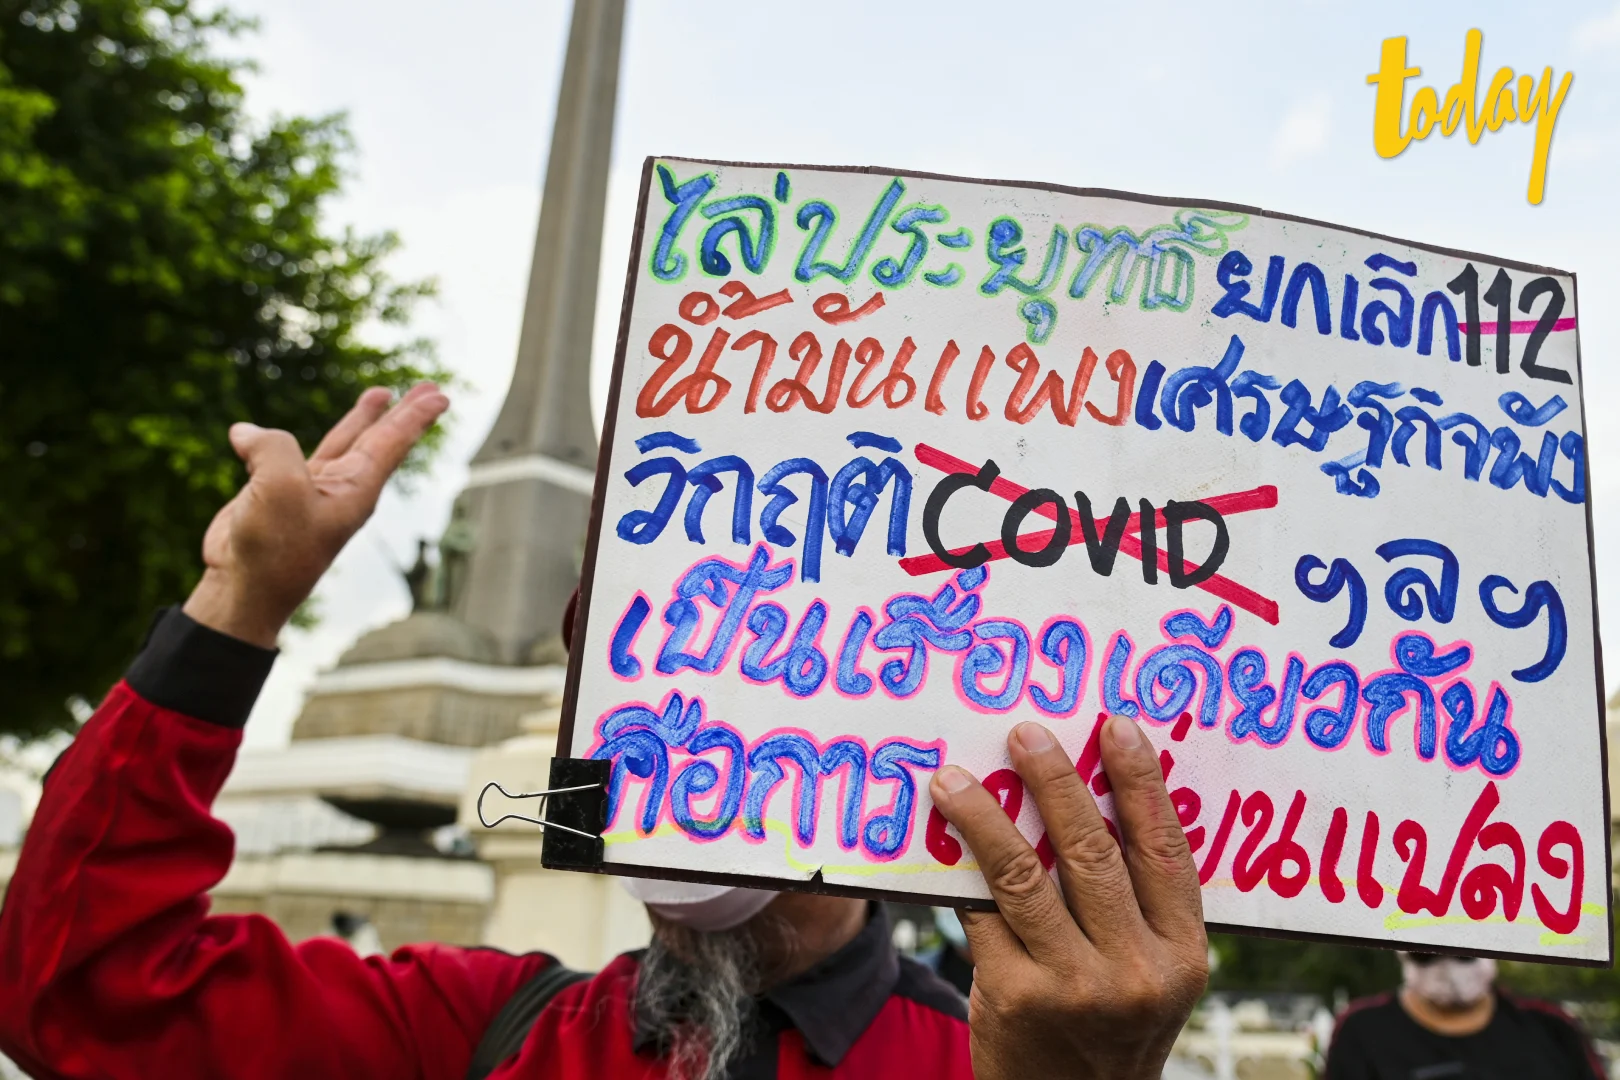 today
ไล่ประยุทธ์ ยกเลิก 112
น้ำมันแพง เศรษฐกิจพัง
วิกฤติ COVID ฯลฯ
เป็นเรื่องเดียวกัน
คือการเปลี่ยนแปลง